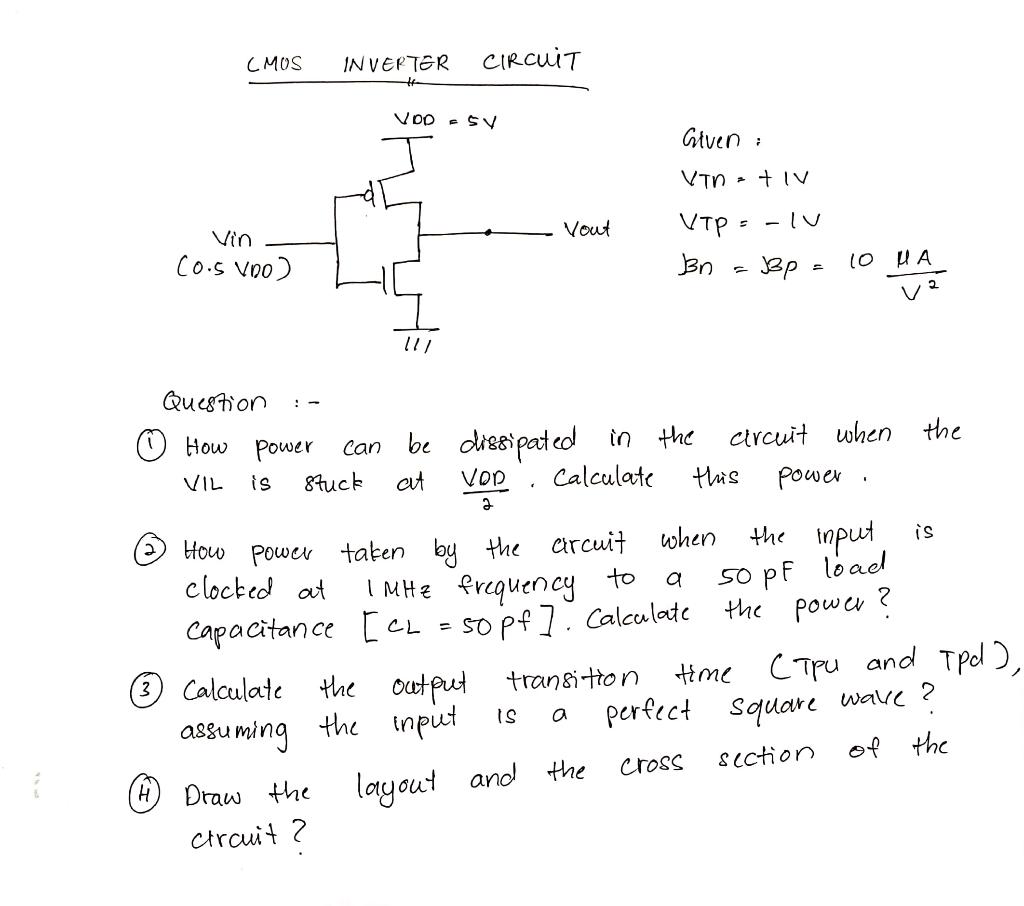 CMOS INVERTER CIRCUIT
VDD = 5V
Given :
VTn = + 1V
VTP = - 1V
Bn = Bp = 10 μA
V²
Vin
(0.5 VDD)
Vout
Question : -
① How power can be dissipated in the circuit when the
VIL is stuck at VDD . Calculate this power .
2
② How power taken by the circuit when the input is
clocked at 1 MHz frequency to a 50 pF load
capacitance [ CL = 50 pf ] . Calculate the power ?
③ Calculate the output transition time ( TPU and Tpd ) ,
assuming the input is a perfect square wave ?
④ Draw the layout and the cross section of the
circuit ?